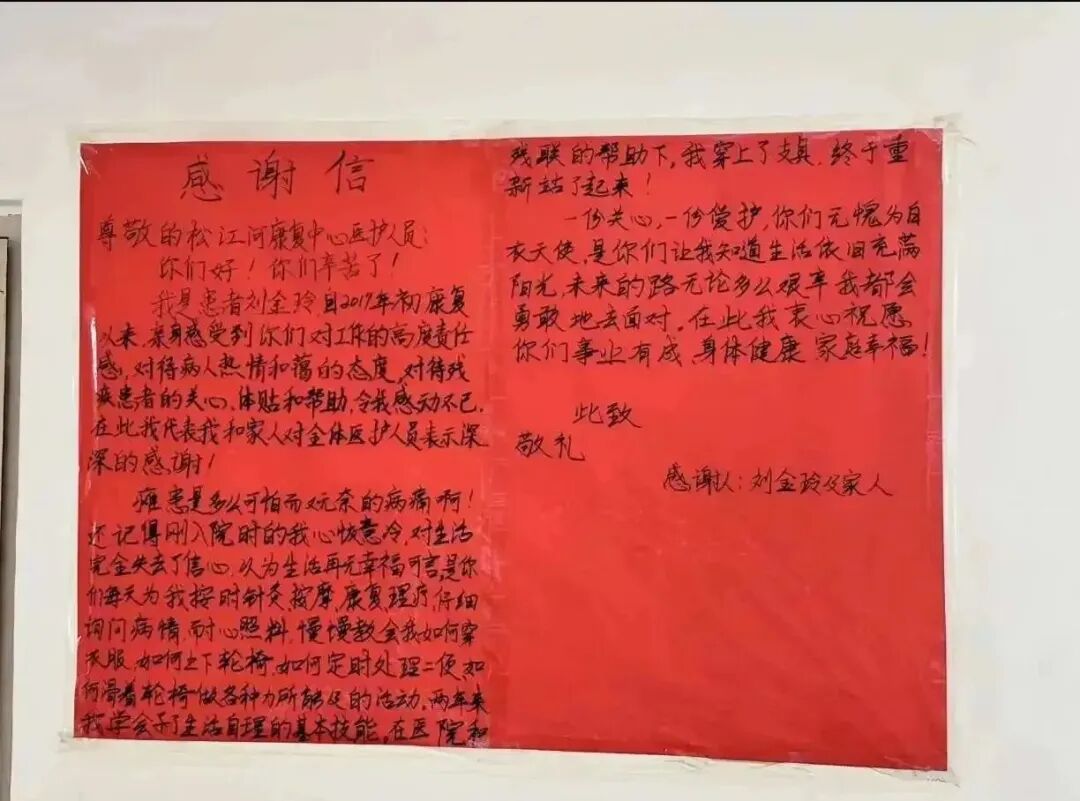 感谢信
尊敬的松江河康复中心医护人员：
你们好！你们辛苦了！
我是患者刘金玲，自2017年初康复
以来，亲身感受到你们对工作的高度责任
感，对待病人热情和蔼的态度，对待残
疾患者的关心、体贴和帮助，令我感动不已，
在此我代表我和家人对全体医护人员表示深
深的感谢！
瘫患是多么可怕而又无奈的病痛啊！
还记得刚入院时的我心恢意冷，对生活
完全失去了信心，以为生活再无幸福可言，是你
们每天为我按时针灸、按摩，康复理疗，仔细
询问病情，耐心照料，慢慢教会我如何穿
衣服，如何上下轮椅，如何定时处理二便，如
何滑着轮椅做各种力所能及的活动，两年来
我学会了生活自理的基本技能，在医院和
残联的帮助下，我穿上了支具，终于重
新站了起来！
一份关心，一份爱护，你们无愧为白
衣天使，是你们让我知道生活依旧充满
阳光，未来的路无论多么艰辛我都会
勇敢地去面对，在此我衷心祝愿
你们事业有成，身体健康，家庭幸福！
此致
敬礼
感谢人：刘金玲及家人